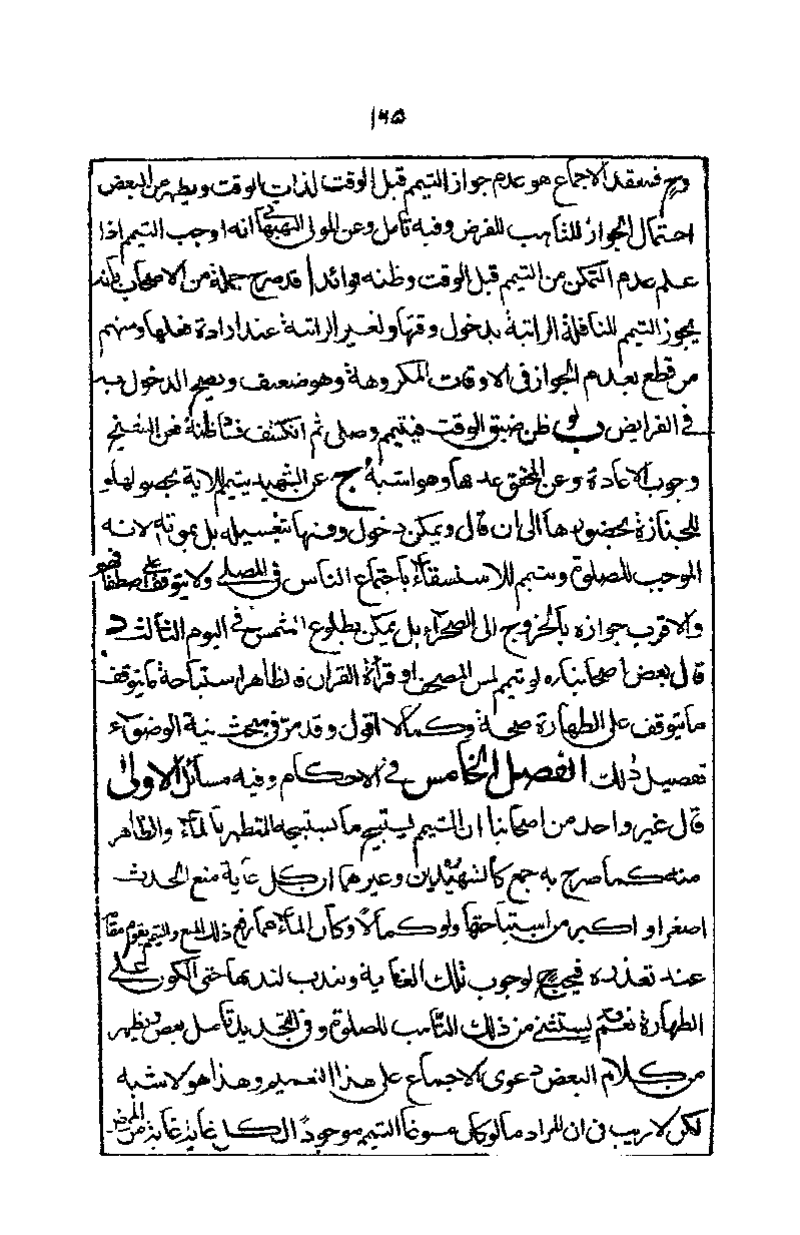 ١٦٥
وح فمنعقد الاجماع هو عدم جواز التيمم قبل الوقت لذات الوقت ويظهر من البعض
احتمال الجواز للتاهب للفرض وفيه تأمل وعن المولى البهبهاني انه اوجب التيمم اذا
علم عدم التمكن من التيمم قبل الوقت وظنه فوائد ا قد صرح جملة من الاصحاب بانه
يجوز التيمم للنافلة الراتبة بدخول وقتها ولغير الراتبة عند ارادة فعلها ومنهم
من قطع بعدم الجواز في الاوقات المكروهة وهو ضعيف ويصح الدخول به
في الفرايض ب لو ظن ضيق الوقت فيتيمم وصلى ثم انكشف فساد ظنه فعن الشيخ
وجوب الاعادة وعن المحقق عدمها وهو اشبه ج عن الشهيد يتيمم للاية بحصولها و
للجنازة بحضورها الى ان قال ويمكن دخول وقتها بتغسيله بل بموته لانه
الموجب للصلوة ويتيمم للاستسقاء باجتماع الناس في المصلى ولا يتوقف على اصطفافهم
والاقرب جوازه بالخروج الى الصحراء بل يمكن بطلوع الشمس في اليوم الثالث د
قال بعض اصحابنا ره لو تيمم لمس المصحف او قرأة القران فالظاهر استباحة ما يتوقف
ما يتوقف على الطهارة صحة وكمالا اقول وقد مر في مبحث نية الوضوء
تفصيل ذلك الفصل الخامس في الاحكام وفيه مسائل الاولى
قال غير واحد من اصحابنا ان التيمم يستبيح ما يستبيحه المتطهر بالماء والظاهر
منه كما صرح به جمع كالشهيدين وغيرهما ان كل غاية منع الحدث
اصغر او اكبر من استباحتها ولو كمالا وكان الماء رافع ذلك المنع والتيمم يقوم مقامه
عند تعذره فيجب لوجوب تلك الغاية ويندب لندبها حتى الكون على
الطهارة نعم يستثنى من ذلك التاهب للصلوة وفي التجديد تأمل بعض ويظهر
من كلام البعض دعوى الاجماع على هذا التعميم وهذا هو لاشبه
لكن لا ريب في ان المراد ما لو كان مسوغا التيمم موجودا لكل غاية غاية من